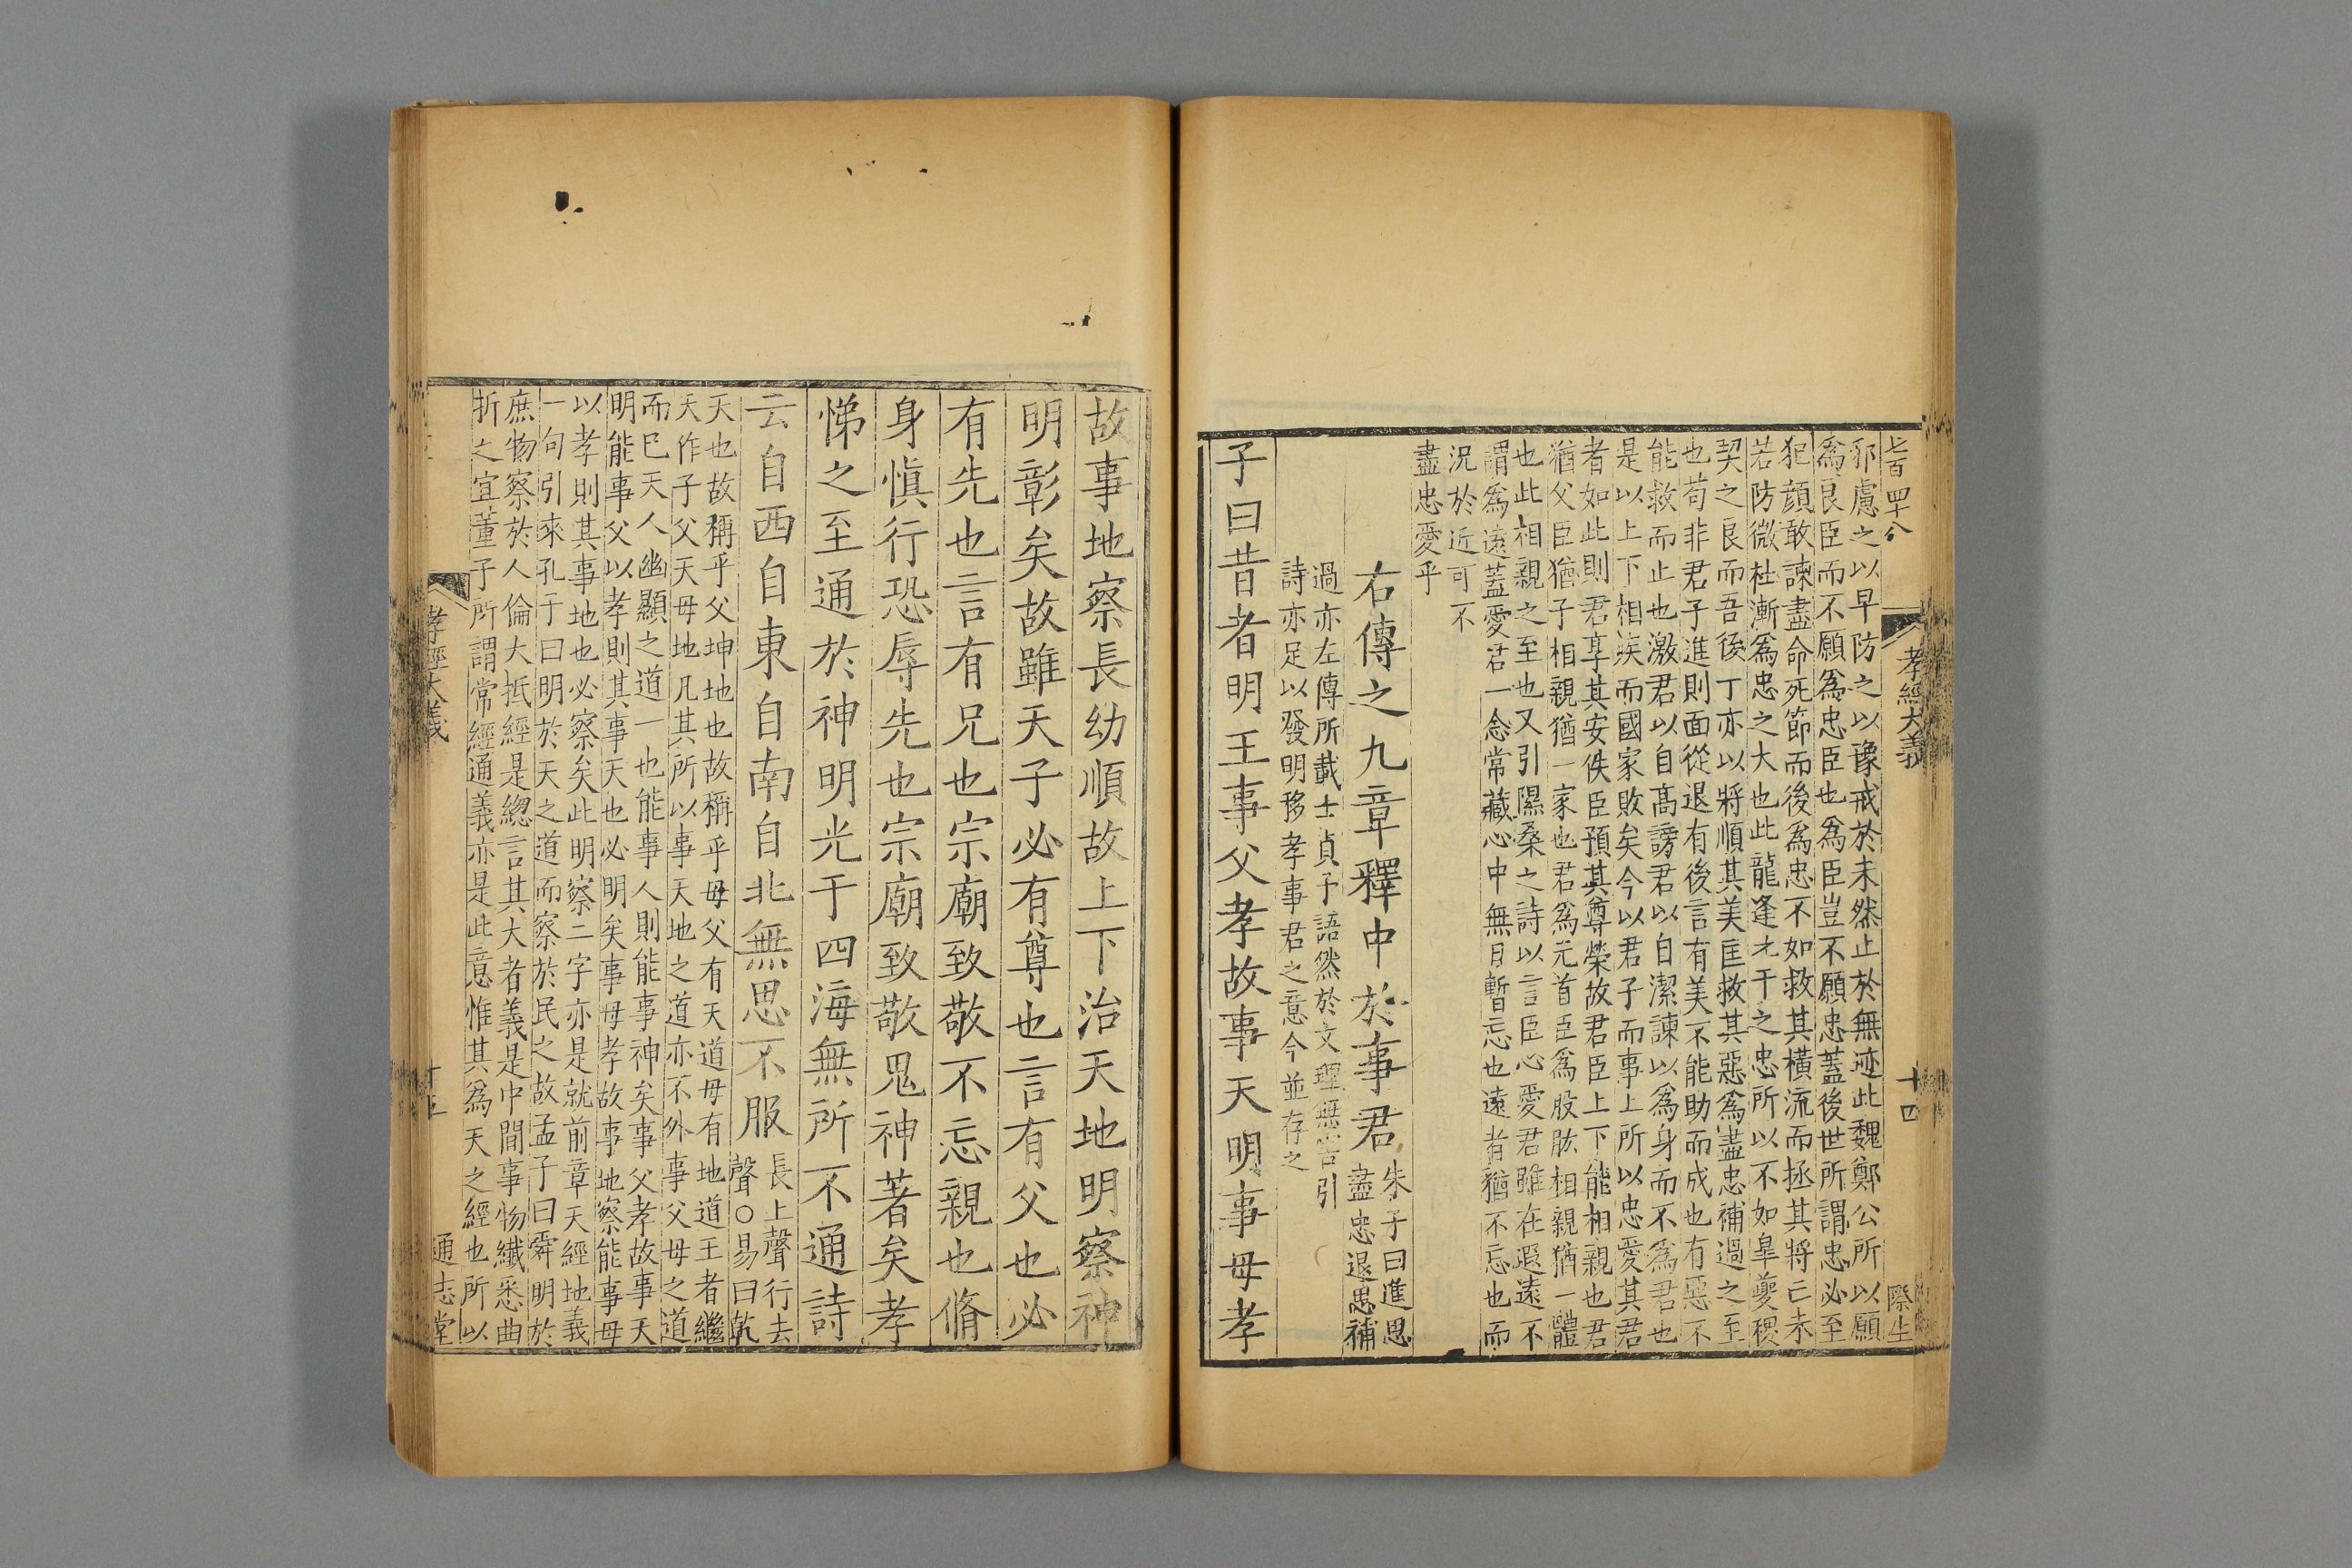 七百四十八
孝經大義
十四
際生
邪慮之以早防之以豫戒於未然止於無迹此魏鄭公所以願
爲良臣而不願爲忠臣也爲臣豈不願忠蓋後世所謂忠必至
犯顔敢諫盡命死節而後爲忠不如救其橫流而拯其將亡未
若防微杜漸爲忠之大也此龍逢比干之忠所以不如皐夔稷
契之良而吾後丁亦以將順其美匡救其惡爲盡忠補過之至
也苟非君子進則面從退有後言有美不能助而成也有惡不
能救而止也激君以自高謗君以自潔諫以爲身而不爲君也
是以上下相疾而國家敗矣今以君子而事上所以忠愛其君
者如此則君享其安佚臣預其尊榮故君臣上下能相親也君
猶父臣猶子相親猶一家也君爲元首臣爲股肱相親猶一體
也此相親之至也又引隰桑之詩以言臣心愛君雖在遐遠不
謂爲遠蓋愛君一念常藏心中無日暫忘也遠者猶不忘也而
況於近可不
盡忠愛乎
右傳之九章釋中於事君
朱子曰進思
盡忠退思補
過亦左傳所載士貞子語然於文理無害引
詩亦足以發明移孝事君之意今並存之
子曰昔者明王事父孝故事天明事母孝
故事地察長幼順故上下治天地明察神
明彰矣故雖天子必有尊也言有父也必
有先也言有兄也宗廟致敬不忘親也脩
身愼行恐辱先也宗廟致敬鬼神著矣孝
悌之至通於神明光于四海無所不通詩
云自西自東自南自北無思不服
長上聲行去
聲○易曰乾
天也故稱乎父坤地也故稱乎母父有天道母有地道王者繼
天作子父天母地凡其所以事天地之道亦不外事父母之道
而巳天人幽顯之道一也能事人則能事神矣事父孝故事天
明能事父以孝則其事天也必明矣事母孝故事地察能事母
以孝則其事地也必察矣此明察二字亦是就前章天經地義
一句引來孔子曰明於天之道而察於民之故孟子曰舜明於
庶物察於人倫大抵經是總言其大者義是中間事物纎悉曲
折之宜董子所謂常經通義亦是此意惟其爲天之經也所以
孝經大義
十五
通志堂